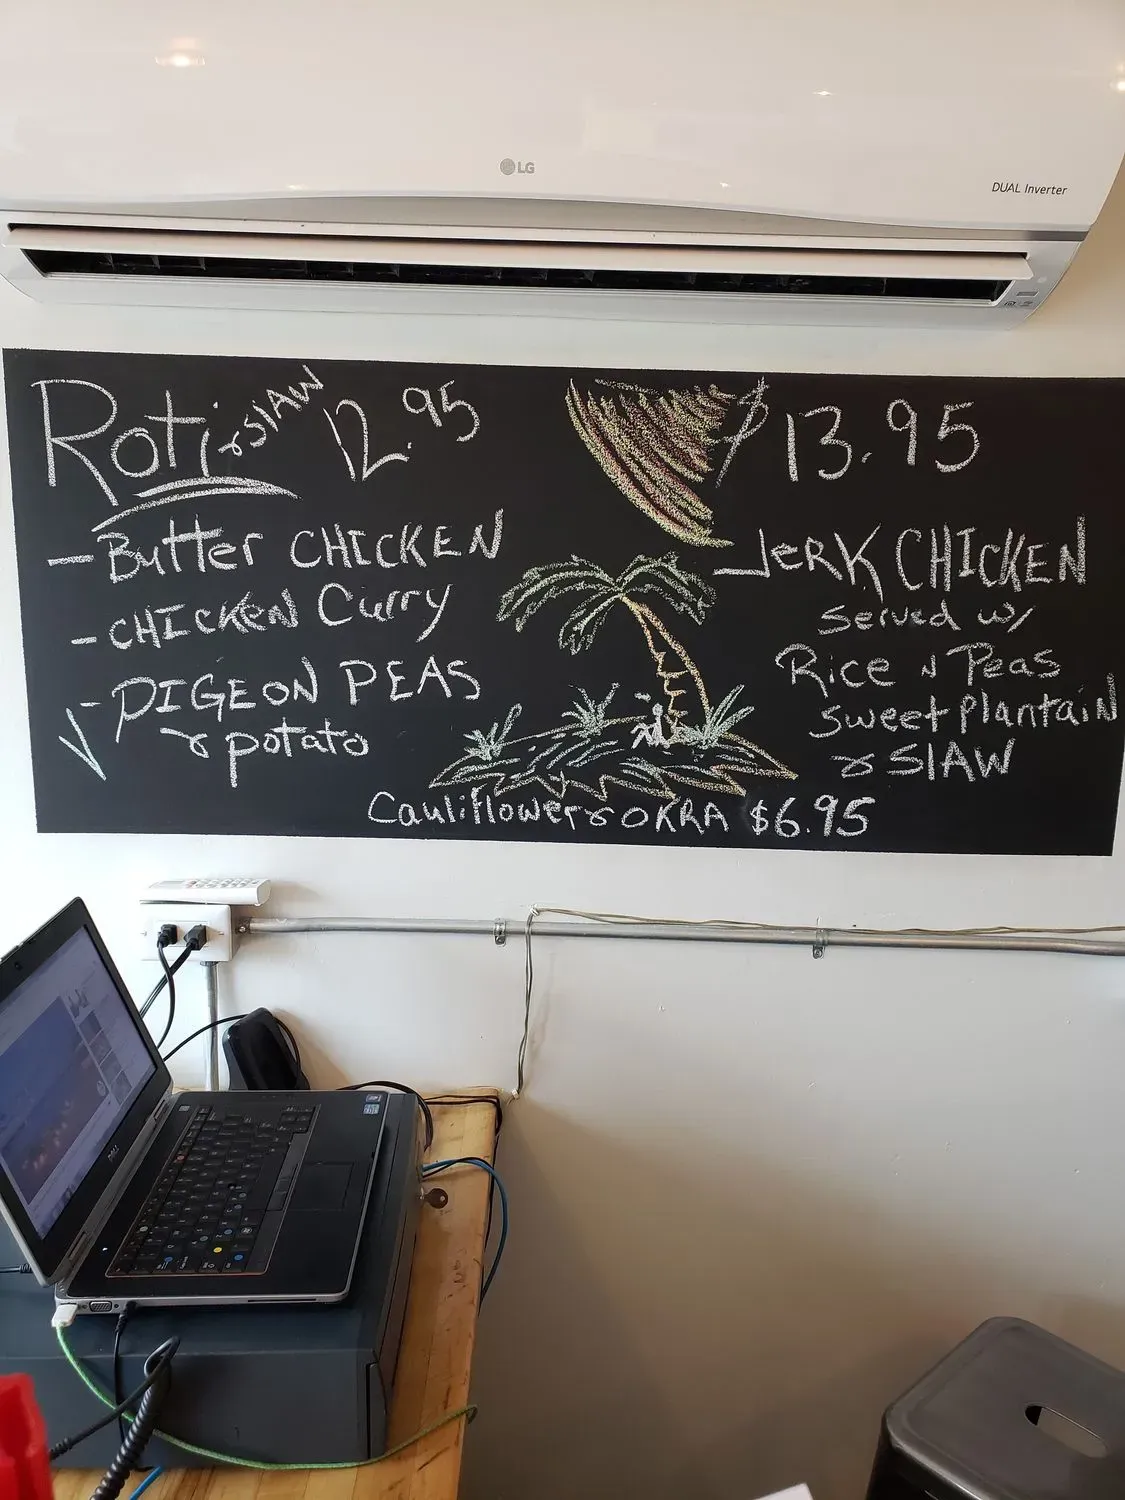 LG
DUAL Inverter
Roti & SLAW 12.95
- Butter CHICKEN
- CHICKEN Curry
- PIGEON PEAS
& potato
V
$13.95
JERK CHICKEN
served w/
Rice N Peas
sweet plantain
& SLAW
Cauliflower & OKRA $6.95
DELL